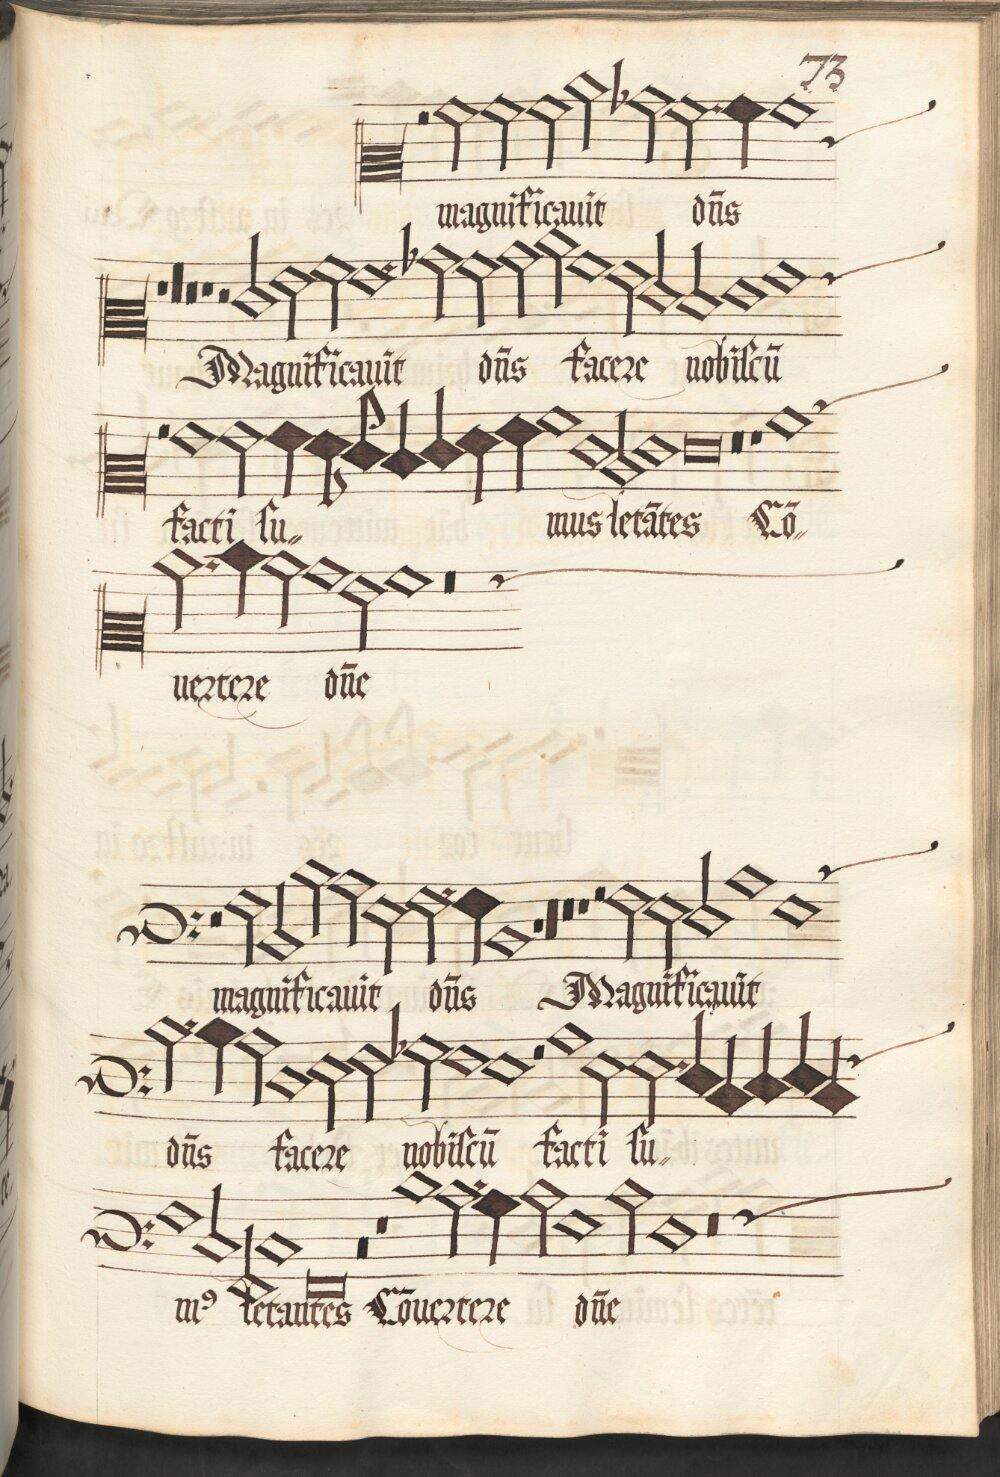 73
magnificauit dn̄s
Magnificauit dn̄s facere nobiscū
facti su〃 mus letātes Cō〃
uertere dn̄e
magnificauit dn̄s Magnificauit
dn̄s facere nobiscū facti su〃
mꝰ letantes Cōuertere dn̄e